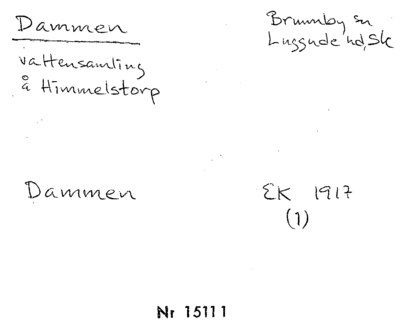 Dammen
Brunnby sn
Luggude hd, Sk
vattensamling
å Himmelstorp
Dammen
EK 1917
(1)
Nr 15111